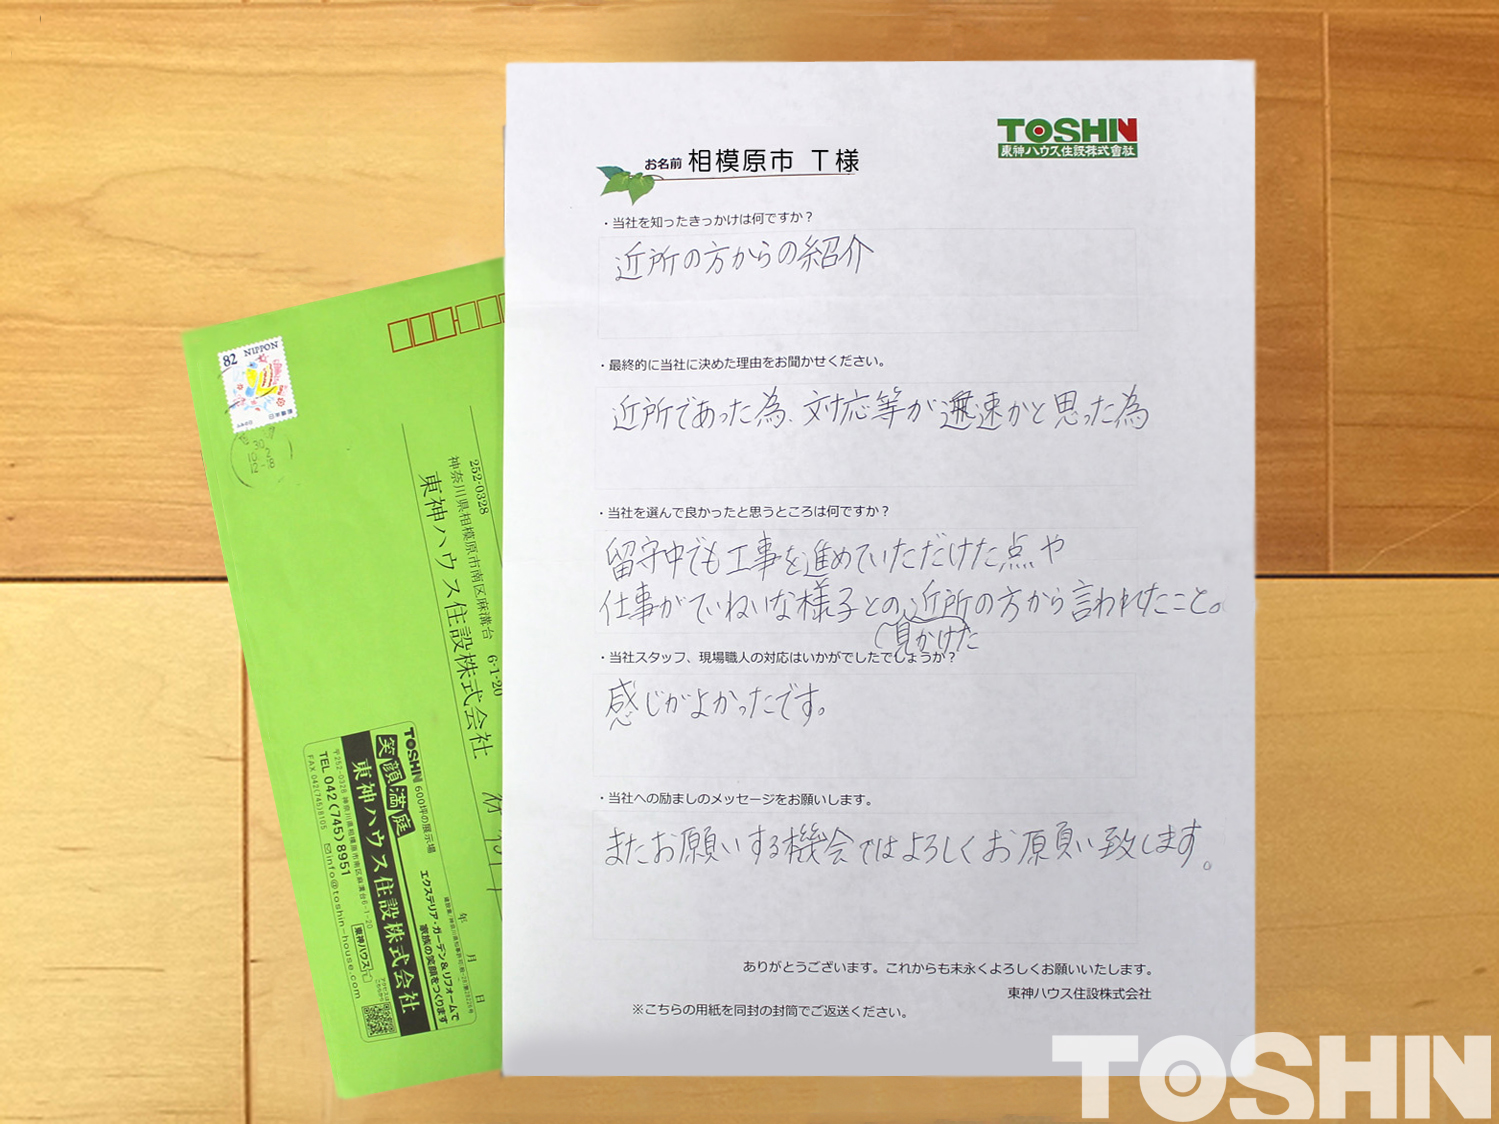 TOSHIN
東神ハウス住設株式會社
お名前 相模原市 T様
・当社を知ったきっかけは何ですか？
近所の方からの紹介
・最終的に当社に決めた理由をお聞かせください。
近所であった為、対応等が迅速かと思った為
・当社を選んで良かったと思うところは何ですか？
留守中でも工事を進めていただけた点や
仕事がていねいな様子との近所の方から言われたこと。
見かけた
・当社スタッフ、現場職人の対応はいかがでしたでしょうか？
感じがよかったです。
・当社への励ましのメッセージをお願いします。
またお願いする機会ではよろしくお願い致します。
ありがとうございます。これからも末永くよろしくお願いいたします。
東神ハウス住設株式会社
※こちらの用紙を同封の封筒でご返送ください。
82 NIPPON
252-0328
神奈川県相模原市南区麻溝台 6-1-20
東神ハウス住設株式会社
年 月 日
TOSHIN 600坪の展示場
笑顔満庭
エクステリア・ガーデン&リフォームで
家族の笑顔をつくります
東神ハウス住設株式会社
〒252-0328 神奈川県相模原市南区麻溝台6-1-20
TEL 042(745)8951
FAX 042(745)8105
info@toshin-house.com
東神ハウス
TOSHIN